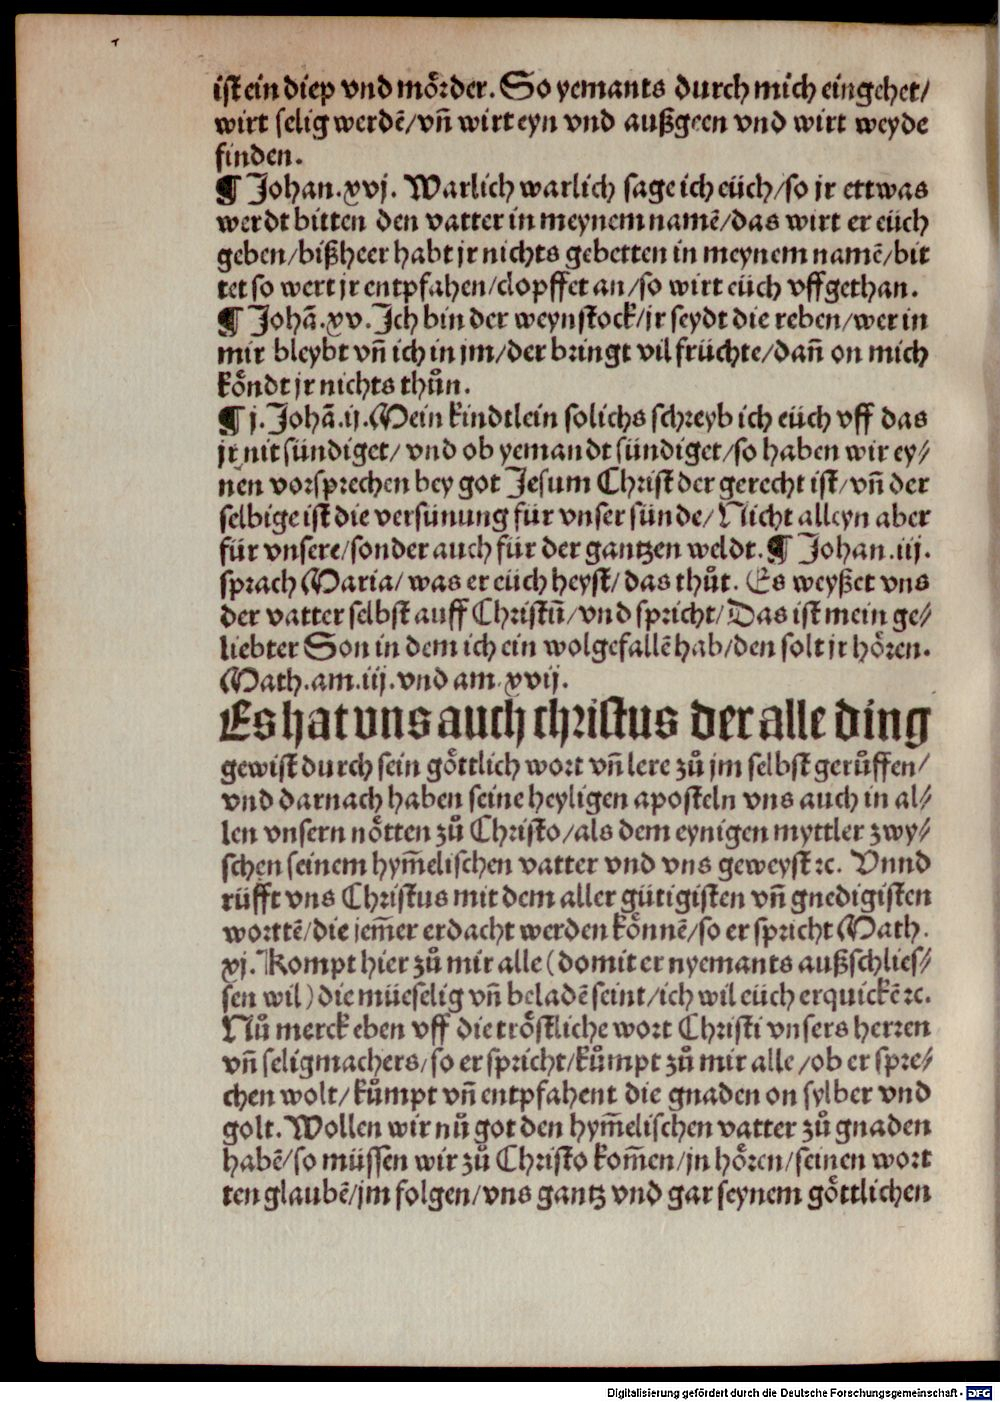 ist ein diep vnd mörder. So yemants durch mich eingehet/
wirt selig werdē/vn̄ wirt eyn vnd außgeen vnd wirt weyde
finden.
¶ Johan.xvj. Warlich warlich sage ich eüch/so jr ettwas
werdt bitten den vatter in meynem namē/das wirt er eüch
geben/bißheer habt jr nichts gebetten in meynem namē/bit
tet so wert jr entpfahen/clopffet an/so wirt eüch vffgethan.
¶ Johā.xv. Ich bin der weynstock/jr seydt die reben/wer in
mir bleybt vn̄ ich in jm/der bringt vil früchte/dan̄ on mich
köndt jr nichts thůn.
¶ j. Johā.ij. Mein kindtlein solichs schreyb ich eüch vff das
jr nit sündiget/ vnd ob yemandt sündiget/so haben wir ey⸗
nen vorsprechen bey got Jesum Christ der gerecht ist/vn̄ der
selbige ist die versünung für vnser sünde/Nicht alleyn aber
für vnsere/sonder auch für der gantzen weldt.¶ Johan.iij.
sprach Maria/ was er eüch heyst/das thůt. Es weyßet vns
der vatter selbst auff Christū/vnd spricht/Das ist mein ge⸗
liebter Son in dem ich ein wolgefallē hab/den solt jr hören.
Math.am.iij.vnd am.xvij.
Es hat vns auch christus der alle ding
gewist durch sein göttlich wort vn̄ lere zů jm selbst gerůffen/
vnd darnach haben seine heyligen aposteln vns auch in al⸗
len vnsern nötten zů Christo/als dem eynigen myttler zwy⸗
schen seinem hym̄elischen vatter vnd vns geweyst ⁊c. Vnnd
rüfft vns Christus mit dem aller gütigisten vn̄ gnedigisten
worttē/die jem̄er erdacht werden könnē/so er spricht Math.
xj. Kompt hier zů mir alle (domit er nyemants außschlies⸗
sen wil) die müeselig vn̄ beladē seint/ich wil eüch erquickē ⁊c.
Nů merck eben vff die tröstliche wort Christi vnsers herren
vn̄ seligmachers/so er spricht/kůmpt zů mir alle/ob er spre⸗
chen wolt/kůmpt vn̄ entpfahent die gnaden on sylber vnd
golt. Wollen wir nů got den hym̄elischen vatter zů gnaden
habē/so müssen wir zů Christo kom̄en/jn hören/seinen wort
ten glaubē/jm folgen/vns gantz vnd gar seynem göttlichen
Digitalisierung gefördert durch die Deutsche Forschungsgemeinschaft - DFG